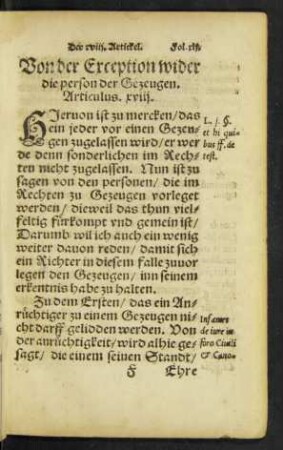 Der xviij. Artickel. Fol. xlj.
Von der Exception wider
die person der Gezeugen.
Articulus. xviij.
HJeruon ist zu mercken/ das
ein jeder vor einen Gezeu-
gen zugelassen wird/ er wer
de denn sonderlichen im Rech-
ten nicht zugelassen. Nun ist zu
sagen von den personen/ die im
Rechten zu Gezeugen vorleget
werden/ dieweil das thun viel-
feltig fürkompt vnd gemein ist/
Darumb wil ich auch ein wenig
weiter dauon reden/ damit sich
ein Richter in diesem falle zuuor
legen den Gezeugen/ inn seinem
erkentnis habe zu halten.
Zu dem Ersten/ das ein An-
rüchtiger zu einem Gezeugen ni-
cht darff gelidden werden. Von
der anrüchtigkeit/ wird alhie ge-
sagt/ die einem seinen Standt/
F Ehre
L. j. §.
et hi qui
bus ff. de
test.
Infames
de iure in
foro Ciuili
& Cano-